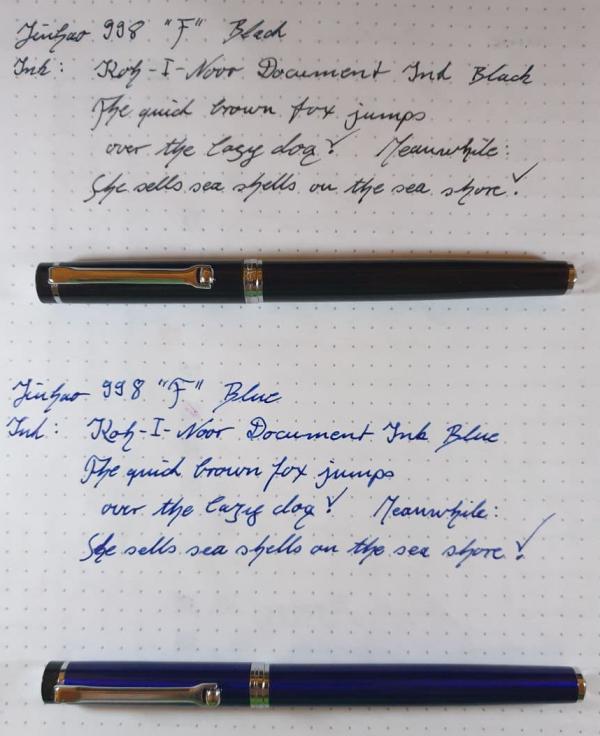 Jinhao 998 "F" Black
Ink: Koh-I-Noor Document Ink Black
The quick brown fox jumps
over the lazy dog! Meanwhile:
She sells sea shells on the sea shore!
Jinhao 998 "F" Blue
Ink: Koh-I-Noor Document Ink Blue
The quick brown fox jumps
over the lazy dog! Meanwhile:
She sells sea shells on the sea shore!